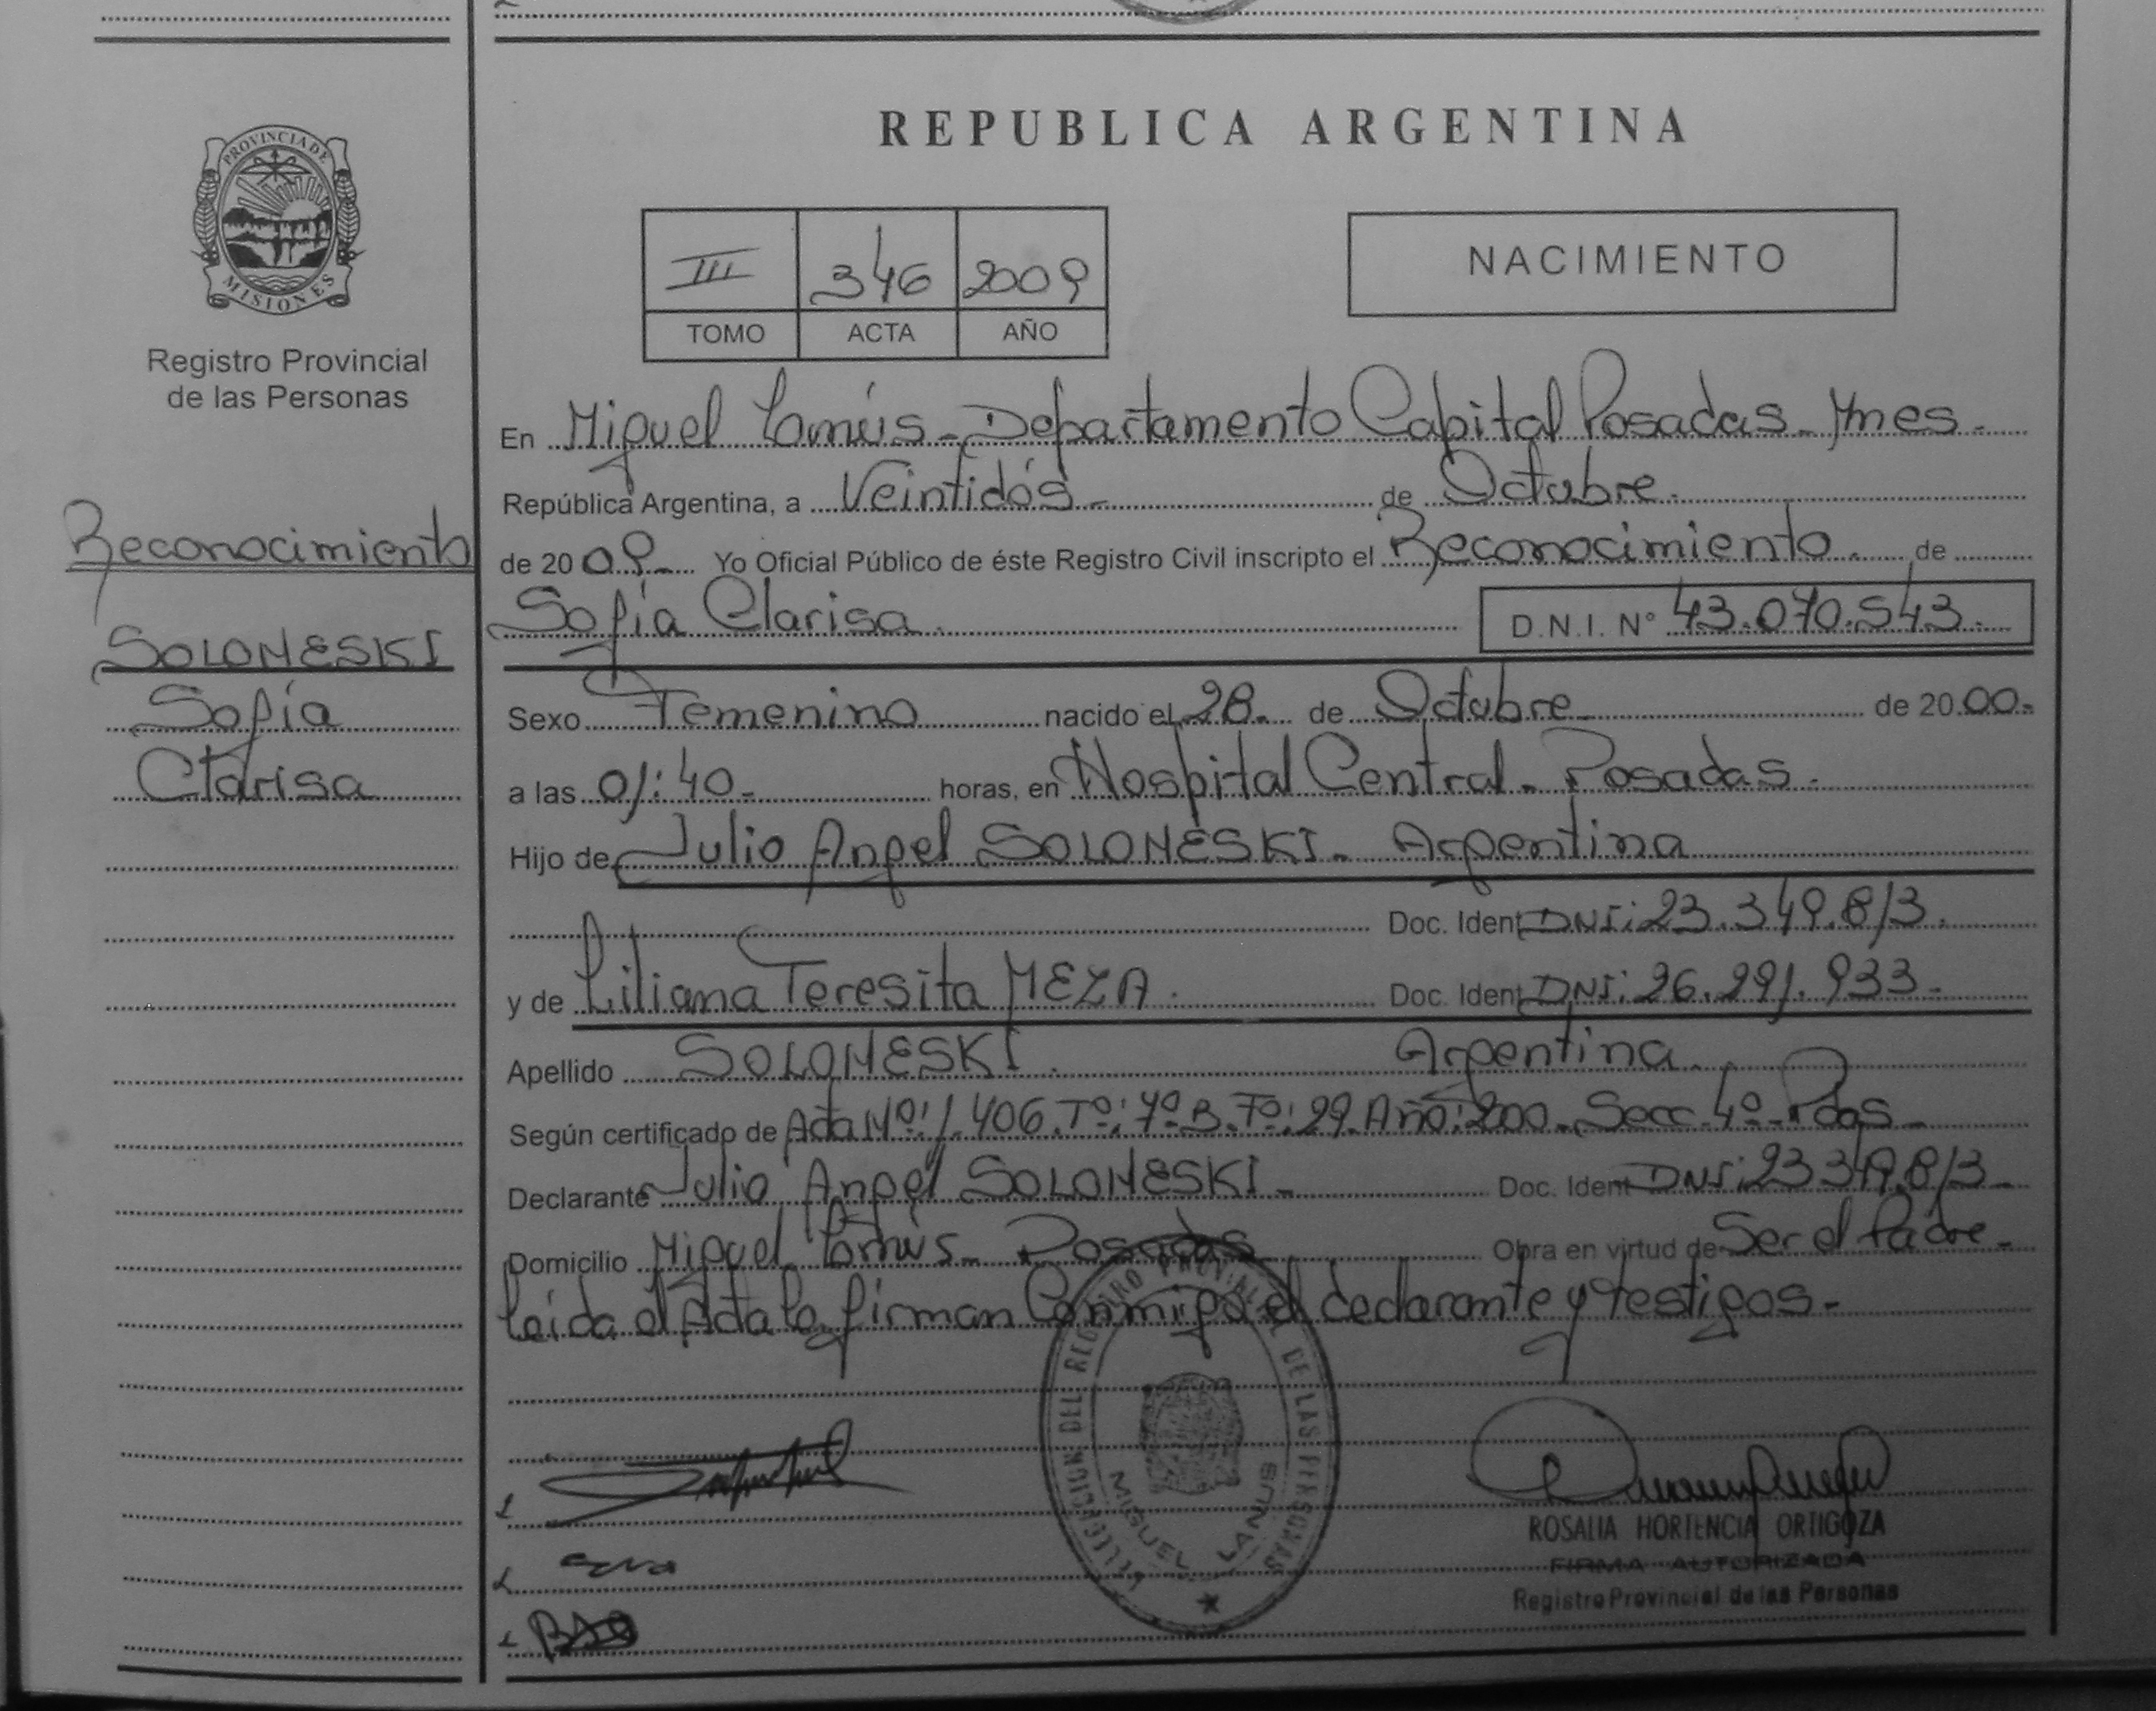 REPUBLICA ARGENTINA
PROVINCIA DE
MISIONES
Registro Provincial
de las Personas
III 346 2009
TOMO ACTA AÑO
NACIMIENTO
Reconocimiento
SOLONESKI
Sofía
Clarisa
En Miguel Lanús - Departamento Capital Posadas - Mnes -
República Argentina, a Veintidós - de Octubre.
de 2009 - Yo Oficial Público de éste Registro Civil inscripto el Reconocimiento. de
Sofía Clarisa. D.N.I. N° 43.070.543.-
Sexo Femenino nacido el 28. de Octubre. de 2000.-
a las 01:40.- horas, en Hospital Central - Posadas.-
Hijo de Julio Angel SOLONESKI - Argentina
Doc. Ident DNI: 23.349.813.
y de Liliana Teresita MEZA. Doc. Ident DNI: 26.291.933.-
Apellido SOLONESKI. Argentina.
Según certificado de Acta Nº: 1.406. Tº: 7º B. Fº: 29. Año: 200.- Secc 4º - Pdas -
Declarante Julio Angel SOLONESKI - Doc. Ident DNI: 23 349.813 -
Domicilio Miguel Lanús - Posadas Obra en virtud de Ser el Padre -
Leída el Acta la firman Conmigo el declarante y testigos -
DEL REGISTRO PROVINCIAL DE LAS PERSONAS
MIGUEL LANUS
ROSALIA HORTENCIA ORTIGOZA
FIRMA AUTORIZADA
Registro Provincial de las Personas